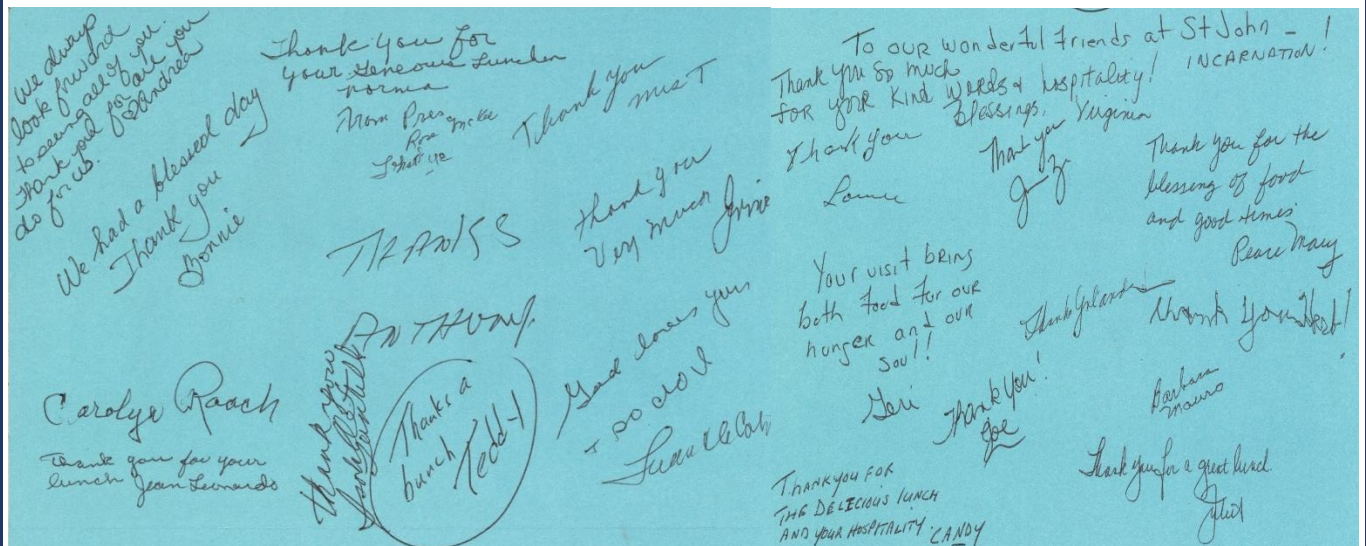 We always
look forward
to seeing all of you.
Thank you for all you
do for us. Andrea
We had a blessed day
Thank you
Bonnie
Thank you for
your generous Lunch
norma
From Pres
Rose McKee
Thank you
mis T
THANKS
ANTHONY
thank you
Very much
Carolyn Roach
Thank you for your
lunch Jean Leonardo
thank you
Thanks a
bunch
Tedd-1
God loves you
I so do I
To our wonderful friends at St John -
INCARNATION!
Thank you so much
for your kind words & hospitality!
Blessings, Virginia
Thank you
Thank you
Thank you for the
blessing of food
and good times
Peace Mary
Your visit bring
both food for our
hunger and our
soul!!
Geri
Thank You!
Joe
Thank You
Barbara
Mauro
THANK YOU FOR
THE DELECIOUS LUNCH
AND YOUR HOSPITALITY. CANDY
Thank you for a great lunch.